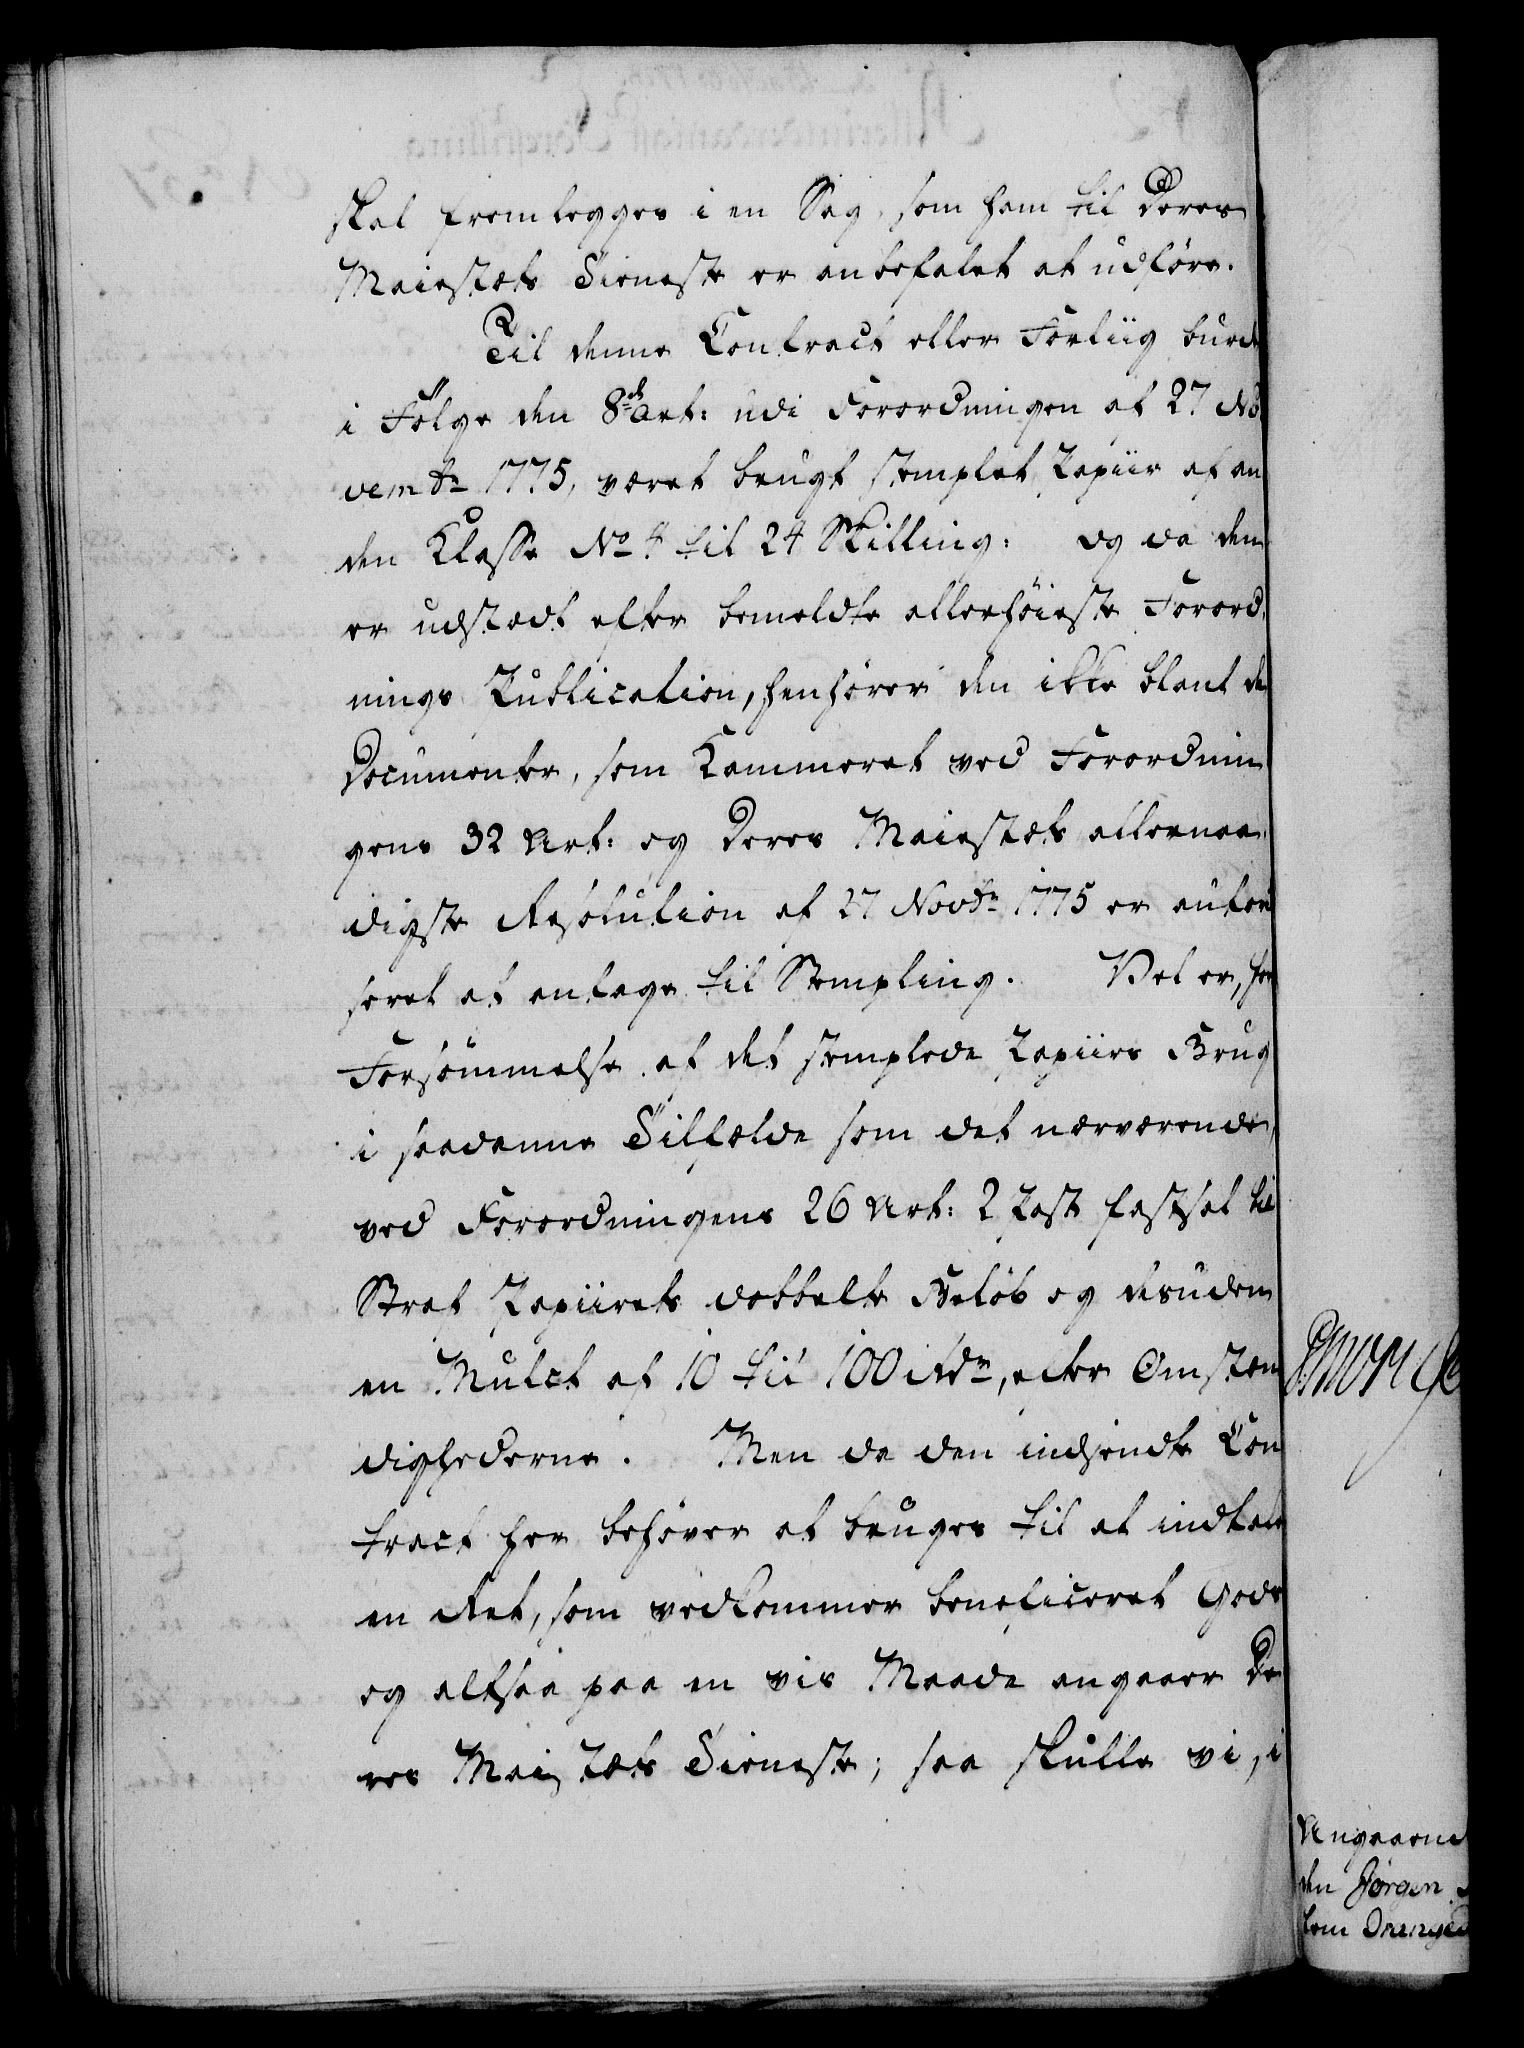 skal fremlegges i en Sag, som ham til Deres
Maiestæts Tieneste er anbefalet at udføre.
Til denne Contract eller Forliig burde
i Følge den 8de Art: udi Forordningen af 27 No
vembr 1775, været brugt stemplet Papiir af an
den Classe No 4 til 24 Skilling: og da den
er udstædt efter bemeldte allerhøieste Forord,
nings Publication, henhører den ikke blant de
Documenter, som Kammeret ved Forordnin
gens 32 Art: og Deres Maiestæts allernaa,
digste Resolution af 27 Novbr 1775 er autori
seret at antage til Stempling. Vel er, for
Forsömmelse af det stemplede Papiirs Brug
i saadanne Tilfælde som det nærværende,
ved Forordningens 26 Art: 2 Post fastsat til
Straf Papiirets dobbelte Beløb og desuden
en Mulct af 10 til 100 Rdr, efter Omstæn
dighederne. Men da den indsendte Con
tract her behøver at bruges til at indtale
en Ret, som vedkommer beneficeret Gods
og altsaa paa en vis Maade angaaer De
res Majestæts Tieneste; saa skulle vi, i
Angaaend
den Jørgen